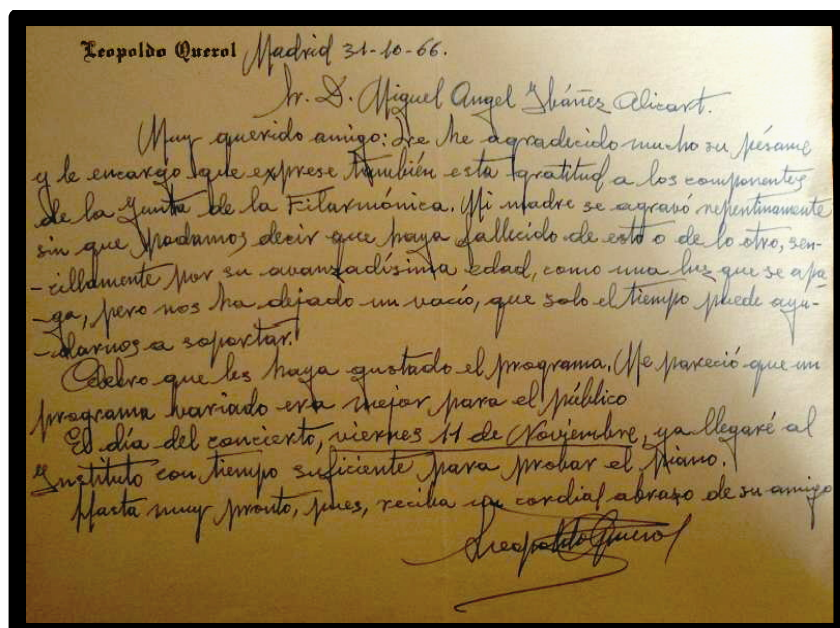 Leopoldo Querol Madrid 31-10-66.
Sr. D. Miguel Angel Ibáñez Alicart.
Muy querido amigo: Le he agradecido mucho su pésame
y le encargo que exprese también esta gratitud a los componentes
de la Junta de la Filarmónica. Mi madre se agravó repentinamente
sin que podamos decir que haya fallecido de esto o de lo otro, sen-
-cillamente por su avanzadísima edad, como una luz que se apa-
-ga, pero nos ha dejado un vacío, que solo el tiempo puede ayu-
-darnos a soportar.
Celebro que les haya gustado el programa. Me pareció que un
programa variado era mejor para el público
El día del concierto, viernes 11 de Noviembre, ya llegaré al
Instituto con tiempo suficiente para probar el piano.
Hasta muy pronto, pues, reciba un cordial abrazo de su amigo
Leopoldo Querol